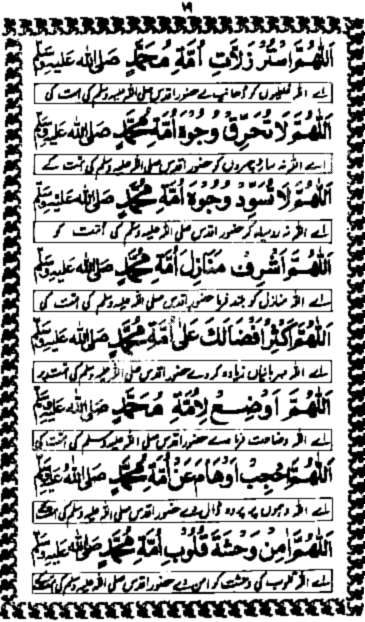 ۱۹
اَللّٰهُمَّ اسْتُرْ زَلَّاتِ اُمَّةِ مُحَمَّدٍ صَلَّى الله عَلَيْهِ ﷺ
اے اللہ غلطیوں کو ڈھانپ دے حضور اقدس صلی اللہ علیہ وسلم کی امت کی
اَللّٰهُمَّ لَا تُحَرِّقْ وُجُوْهَ اُمَّةِ مُحَمَّدٍ صَلَّى الله عَلَيْهِ ﷺ
اے اللہ نہ ساڑ چہروں کو حضور اقدس صلی اللہ علیہ وسلم کی امت کے
اَللّٰهُمَّ لَا تُسَوِّدْ وُجُوْهَ اُمَّةِ مُحَمَّدٍ صَلَّى الله عَلَيْهِ ﷺ
اے اللہ نہ روسیاہ کر حضور اقدس صلی اللہ علیہ وسلم کی امت کو
اَللّٰهُمَّ اَشْرِفْ مَنَازِلَ اُمَّةِ مُحَمَّدٍ صَلَّى الله عَلَيْهِ ﷺ
اے اللہ منازل کو بلند فرما حضور اقدس صلی اللہ علیہ وسلم کی امت کی
اَللّٰهُمَّ اَكْثِرْ اَفْضَالَكَ عَلٰى اُمَّةِ مُحَمَّدٍ صَلَّى الله عَلَيْهِ ﷺ
اے اللہ مہربانیاں زیادہ کر دے حضور اقدس صلی اللہ علیہ وسلم کی امت پر
اَللّٰهُمَّ اَوْضِعْ لِاُمَّةِ مُحَمَّدٍ صَلَّى الله عَلَيْهِ ﷺ
اے اللہ وضاحت فرما دے حضور اقدس صلی اللہ علیہ وسلم کی امت کی
اَللّٰهُمَّ احْجِبْ اَوْهَامَ عَنْ اُمَّةِ مُحَمَّدٍ صَلَّى الله عَلَيْهِ ﷺ
اے اللہ وہموں پر پردہ ڈال دے حضور اقدس صلی اللہ علیہ وسلم کی امت
اَللّٰهُمَّ اٰمِنْ وَحْشَةَ قُلُوْبِ اُمَّةِ مُحَمَّدٍ صَلَّى الله عَلَيْهِ ﷺ
اے اللہ قلوب کی وحشت کو امن دے حضور اقدس صلی اللہ علیہ وسلم کی امت